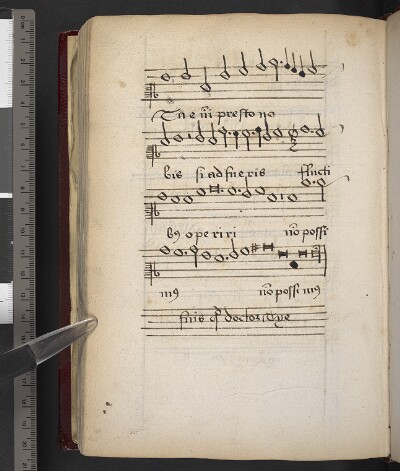 Tu em̄ presto no
bis si adfueris flucti
bꝰ operiri nō possi
mꝰ nō possimꝰ
finis qd doctor Tye